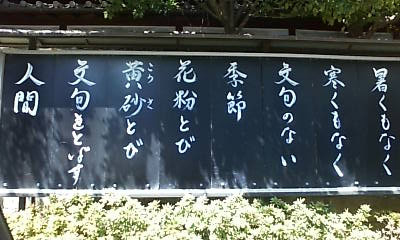 暑くもなく
寒くもなく
文句のない
季節
花粉とび
黄砂とび
こうさ
文句をとばす
人間